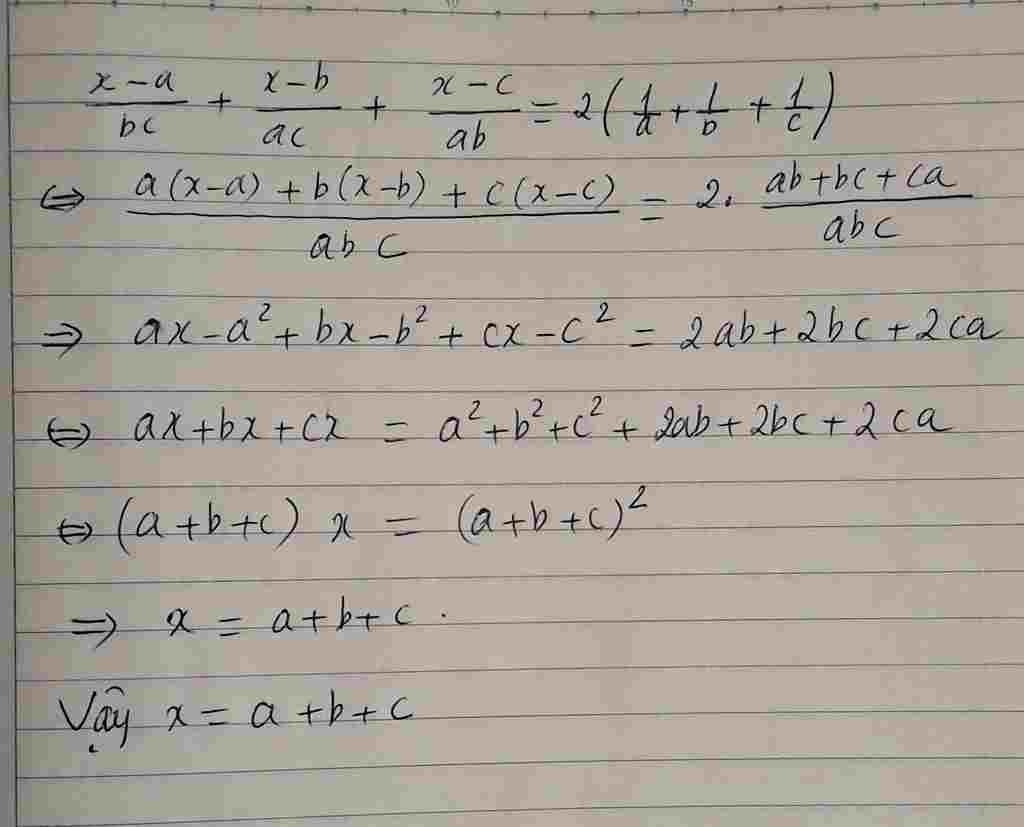 \frac{x-a}{bc} + \frac{x-b}{ac} + \frac{x-c}{ab} = 2\left(\frac{1}{a} + \frac{1}{b} + \frac{1}{c}\right)
⇔ \frac{a(x-a) + b(x-b) + c(x-c)}{abc} = 2. \frac{ab+bc+ca}{abc}
⇒ ax - a² + bx - b² + cx - c² = 2ab + 2bc + 2ca
⇔ ax + bx + cx = a² + b² + c² + 2ab + 2bc + 2ca
⇔ (a+b+c) x = (a+b+c)²
⇒ x = a+b+c.
Vậy x = a+b+c